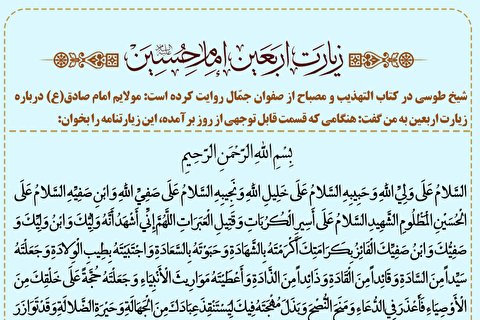 زیارت اربعین امام حسین علیه‌السلام
شیخ طوسی در کتاب التهذیب و مصباح از صفوان جمّال روایت کرده است: مولایم امام صادق(ع) درباره
زیارت اربعین به من گفت: هنگامی که قسمت قابل توجهی از روز برآمده، این زیارتنامه را بخوان:
بِسْمِ اللهِ الرَّحْمَنِ الرَّحِیمِ
السَّلامُ عَلَى وَلِيِّ اللَّهِ وَ حَبِيبِهِ السَّلامُ عَلَى خَلِيلِ اللَّهِ وَ نَجِيبِهِ السَّلامُ عَلَى صَفِيِّ اللَّهِ وَ ابْنِ صَفِيِّهِ السَّلامُ عَلَى
الْحُسَيْنِ الْمَظْلُومِ الشَّهِيدِ السَّلامُ عَلَى أَسِيرِ الْكُرُبَاتِ وَ قَتِيلِ الْعَبَرَاتِ اللَّهُمَّ إِنِّي أَشْهَدُ أَنَّهُ وَلِيُّكَ وَ ابْنُ وَلِيِّكَ وَ
صَفِيُّكَ وَ ابْنُ صَفِيِّكَ الْفَائِزُ بِكَرَامَتِكَ أَكْرَمْتَهُ بِالشَّهَادَةِ وَ حَبَوْتَهُ بِالسَّعَادَةِ وَ اجْتَبَيْتَهُ بِطِيبِ الْوِلادَةِ وَ جَعَلْتَهُ
سَيِّداً مِنَ السَّادَةِ وَ قَائِداً مِنَ الْقَادَةِ وَ ذَائِداً مِنَ الذَّادَةِ وَ أَعْطَيْتَهُ مَوَارِيثَ الْأَنْبِيَاءِ وَ جَعَلْتَهُ حُجَّةً عَلَى خَلْقِكَ مِنَ
الْأَوْصِيَاءِ فَأَعْذَرَ فِي الدُّعَاءِ وَ مَنَحَ النُّصْحَ وَ بَذَلَ مُهْجَتَهُ فِيكَ لِيَسْتَنْقِذَ عِبَادَكَ مِنَ الْجَهَالَةِ وَ حَيْرَةِ الضَّلالَةِ وَ قَدْ تَوَازَرَ